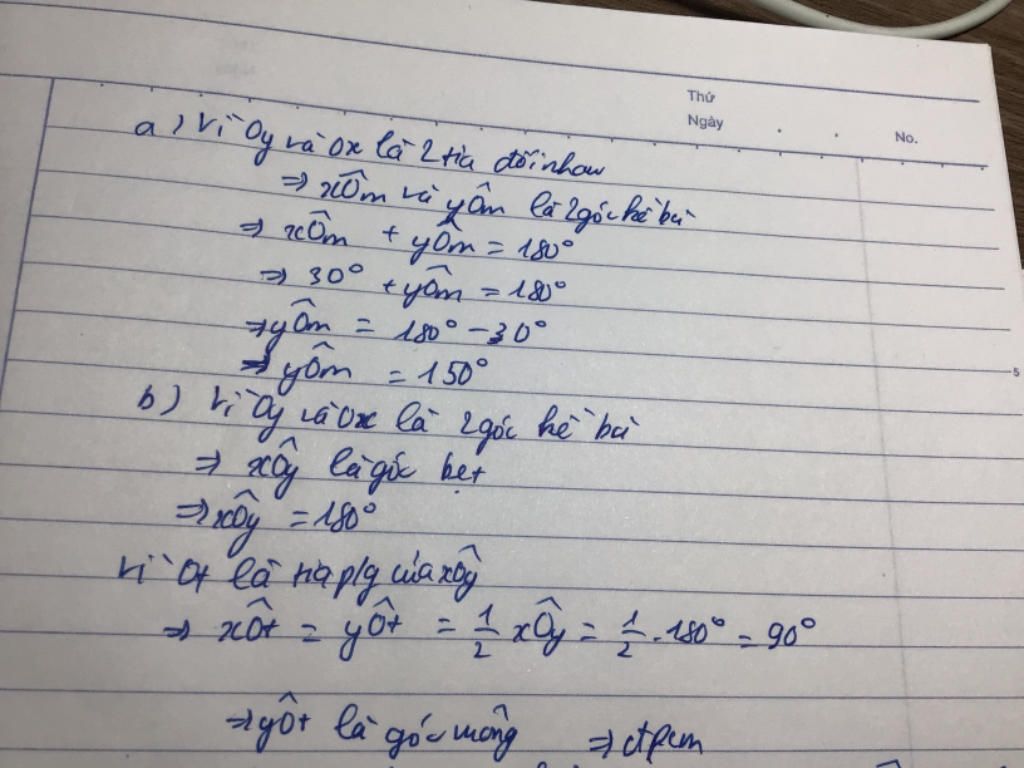 Thứ
Ngày
No.
a) Vì Oy và Ox là 2 tia đối nhau
=> xÔm và yÔm là 2 góc kề bù
=> xÔm + yÔm = 180°
=> 30° + yÔm = 180°
=> yÔm = 180° - 30°
=> yÔm = 150°
5
b) Vì Oy và Ox là 2 góc kề bù
=> xÔy là góc bẹt
=> xÔy = 180°
Vì Ot là tia p/g của xÔy
=> xÔt = yÔt = 1/2 xÔy = 1/2 . 180° = 90°
=> yÔt là góc vuông => đpcm